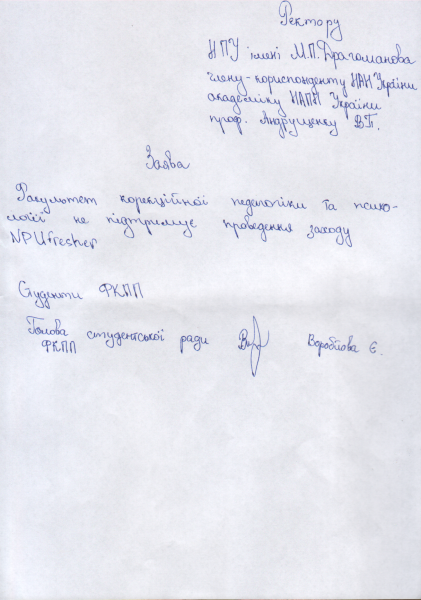 Ректору
НПУ імені М.П.Драгоманова
члену-кориспонденту НАН України
академіку НАПН України
проф. Андрущенку В.П.
Заява
Факультет корекційної педагогіки та психо-
логії не підтримує проведення заходу
NPUfresher
Студенти ФКПП
Голова студентської ради
ФКПП
Воробйова Є.